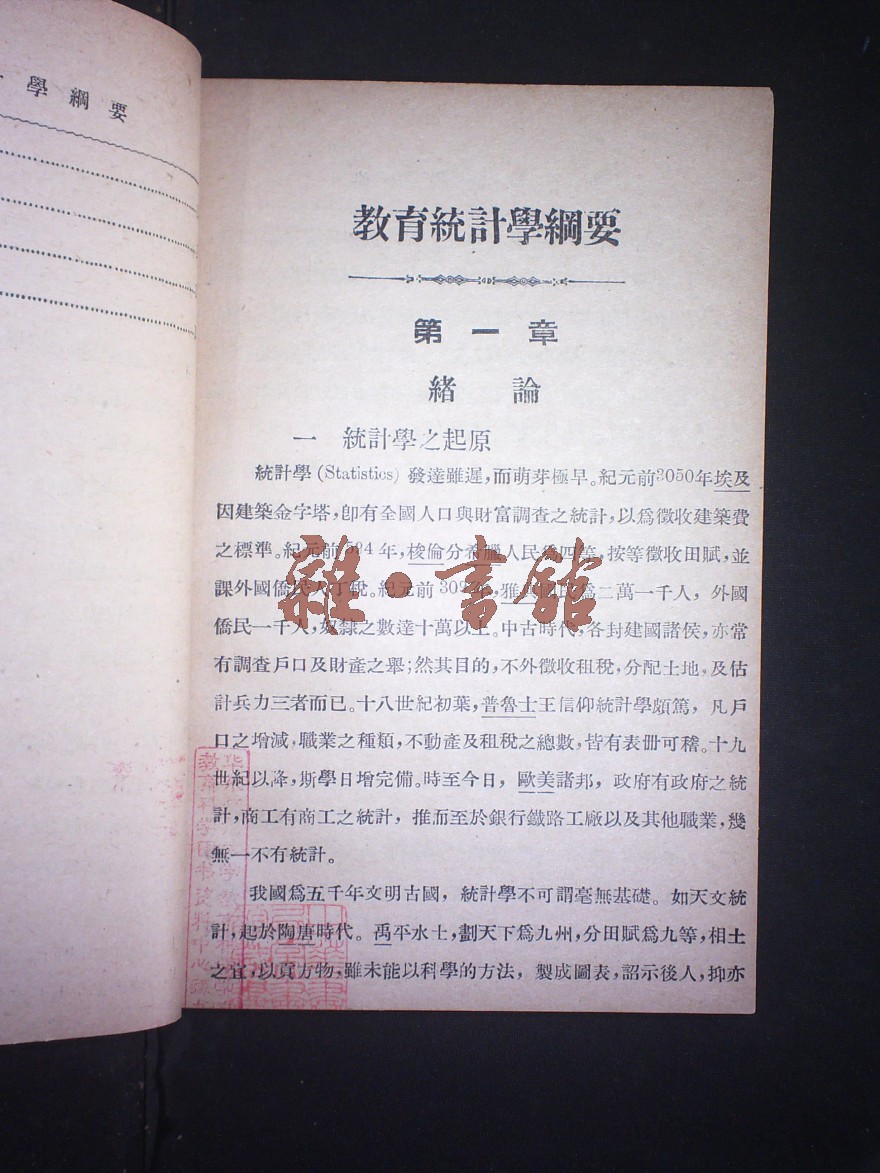 學綱要
教育統計學綱要
第一章
緒論
一 統計學之起原
統計學 (Statistics) 發達雖遲，而萌芽極早。紀元前3050年埃及
因建築金字塔，卽有全國人口與財富調查之統計，以爲徵收建築費
之標準。紀元前594年，梭倫分希臘人民爲四等，按等徵收田賦，並
課外國僑民人丁稅。紀元前309年，雅典國民爲二萬一千人，外國
僑民一千人，奴隸之數達十萬以上。中古時代，各封建國諸侯，亦常
有調查戶口及財產之舉；然其目的，不外徵收租稅，分配土地，及估
計兵力三者而已。十八世紀初葉，普魯士王信仰統計學頗篤，凡戶
口之增減，職業之種類，不動產及租稅之總數，皆有表册可稽。十九
世紀以降，斯學日增完備。時至今日，歐美諸邦，政府有政府之統
計，商工有商工之統計，推而至於銀行鐵路工廠以及其他職業，幾
無一不有統計。
我國爲五千年文明古國，統計學不可謂毫無基礎。如天文統
計，起於陶唐時代。禹平水土，劃天下爲九州，分田賦爲九等，相土
之宜，以貢方物，雖未能以科學的方法，製成圖表，詔示後人，抑亦
雜·書館